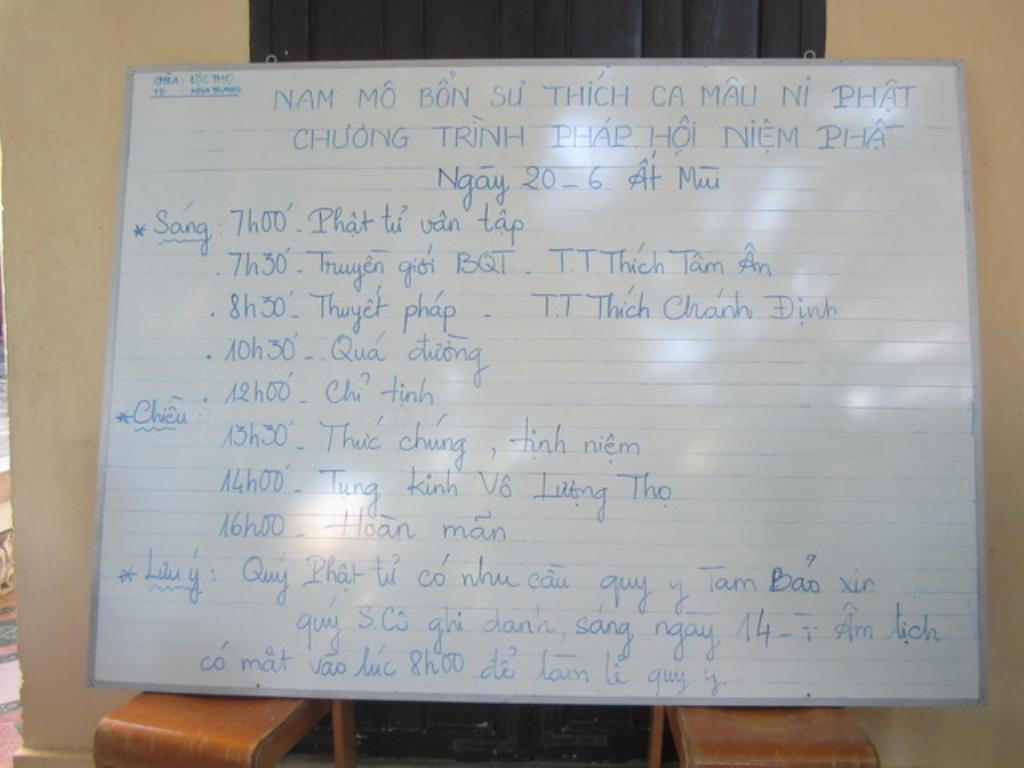 CHÙA : LỘC THỌ
TP : NHA TRANG
NAM MÔ BỔN SƯ THÍCH CA MÂU NI PHẬT
CHƯƠNG TRÌNH PHÁP HỘI NIỆM PHẬT
Ngày 20 - 6 Ất Mùi
* Sáng : 7h00' - Phật tử vân tập
. 7h30' - Truyền giới BQT - T.T Thích Tâm Ân
. 8h30' - Thuyết pháp - T.T Thích Chánh Định
. 10h30' - Quá đường
. 12h00' - Chỉ tịnh
* Chiều :
13h30' - Thức chúng , tịnh niệm
14h00' - Tụng kinh Vô Lượng Thọ
16h00 - Hoàn mãn
* Lưu ý : Quý Phật tử có nhu cầu quy y Tam Bảo xin
quý S.Cô ghi danh, sáng ngày 14 - 7 Âm lịch
có mặt vào lúc 8h00 để làm lễ quy y.